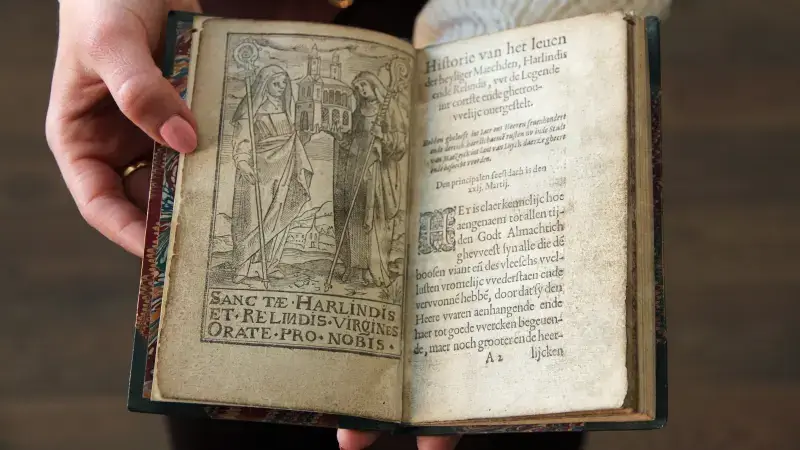 SANCTÆ·HARLINDIS
ET·RELINDIS·VIRGINES
ORATE·PRO·NOBIS·
Historie van het leuen
der heyliger Maechden, Harlindis
ende Relindis, vvt de Legende
int cortste ende ghetrou-
vvelijc ouergestelt.
Hebben ghelooft int Iaer ons Heeren seuenhondert
ende
ende
Den principalen feestdach is den
xxij. Martij.
HEt is claer kennelijc hoe
aengenaem tot allen tij-
den Godt Almachtich
gheweest syn alle die dē
boosen viant eñ des vleeschs vvel-
lusten vromelijc vvederstaen ende
vervvonnē hebbē, door dat sy den
Heere vvaren aenhangende ende
haer tot goede vvercken begeuen-
de, maer noch grooter ende heer-
A 2 lijcken